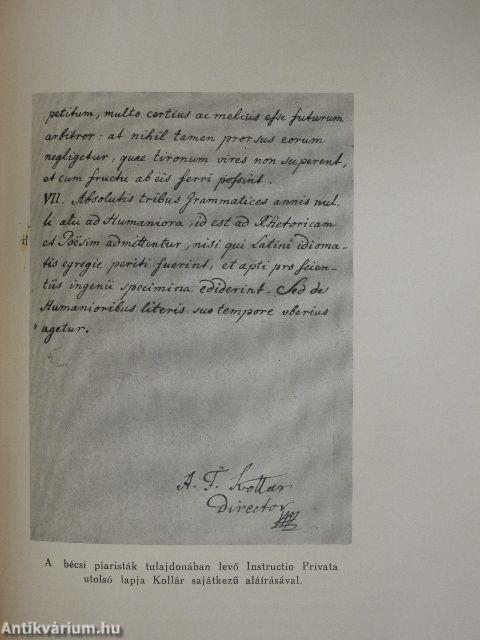 petitum, multo certius ac melius esse futurum
arbitror: at nihil tamen prorsus eorum
negligetur, quae tironum vires non superent,
et cum fructu ab eis ferri possint.
VII. Absolutis tribus Grammatices annis nul-
li alii ad Humaniora, id est ad Rhetoricam
et Poësim admittentur, nisi qui Latini idioma-
tis egregie periti fuerint, et apti pro scien-
tiis ingenii specimina ediderint. Sed de
Humanioribus literis suo tempore uberius
agetur.
A. F. Kollar
Director
A bécsi piaristák tulajdonában levő Instructio Privata
utolsó lapja Kollár sajátkezű aláírásával.
Antikvárium.hu